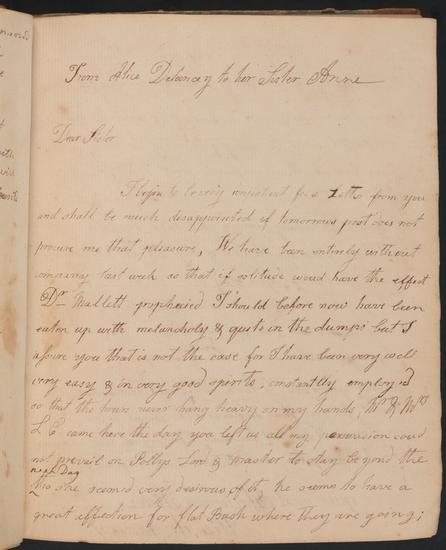 From Alice Delancey to her Sister Anne
Dear Sister
I begin to be very impatient for a Letter from you
and shall be much disappointed if tomorrows post does not
procure me that pleasure, We have been entirely without
company last week so that if solitude would have the effect
Dr. Mallett prophecied I should before now have been
eaten up with melancholy & quite in the dumps but I
assure you that is not the case for I have been very well
very easy & in very good spirits, constantly employ'd
so that the hours never hang heavy on my hands, Mr & Mrs
L C came here the day you left us all my persuasion coud
not prevail on Pollys Lord & master to stay beyond the
next Day
tho she seemed very desirous of it, he seems to have a
great affection for flat Bush where they are going;